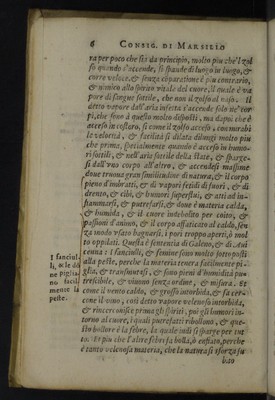 6 CONSIG. DI MARSILIO
ra per poco che sia da principio, molto piu che'l zol
fo quando s'accende, si spande di luogo in luogo, &
corre veloce, & senza comparatione è piu contrario,
& nimico allo spirito vitale del cuore, il quale è va
pore di sangue sottile, che non il zolfo al naso. Il
detto vapore dall'aria infetta s'accende solo ne' cor
pi, che sono à questo molto disposti, ma dapoi che è
acceso in costoro, si come il zolfo acceso,
le velocità, & facilità si dilata dilungi molto piu
che prima, spetialmente quando è acceso in humo-
ri sottili, & nell'aria sottile della state, & sparge-
si dall'uno corpo all'altro, & accendesi massime
doue truoua gran similitudine di natura, & il corpo
pieno d'imbratti, & di vapori fetidi di fuori, & di
drento, & cibi, & humori superflui, & atti ad in-
fiammarsi, & putrefarsi, & doue è materia calda,
& humida, & il cuore indebolito per coito, &
passioni d'animo, & il corpo affaticato al caldo, sen
za modo usato bagnarsi, i pori troppo aperti, ò mol
to oppilati. Questa è sententia di Galeno, & di Aui
cenna: I fanciulli, & femine sono molto sottoposti
alla peste, perche la materia tenera facilmente pi-
glia, & transmutasi, & sono pieni d'humidità pu-
trescibile, & viuono senza ordine, & misura. Et
come il vento caldo, & grosso intorbida, & fa cer-
come il vino, così detto vapore velenoso intorbida,
& rincerconisce prima gli spiriti, poi gli humori in-
torno al cuore, i quali putrefatti ribollono, & que-
sto bollore è la febre, la quale indi si sparge per tut
to. Et piu che l'altre febri fa bolla, ò enfiato, perche
è tanto velenosa materia, che la natura si sforza su
bito
I fanciul.
li, & le dō
ne Piglia-
no facil-
mente la
peste.